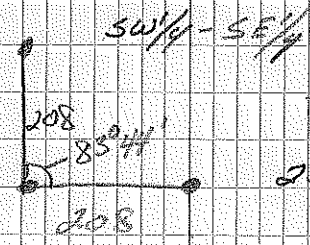 SW¼ - SE¼
208
83°44'
2.
208